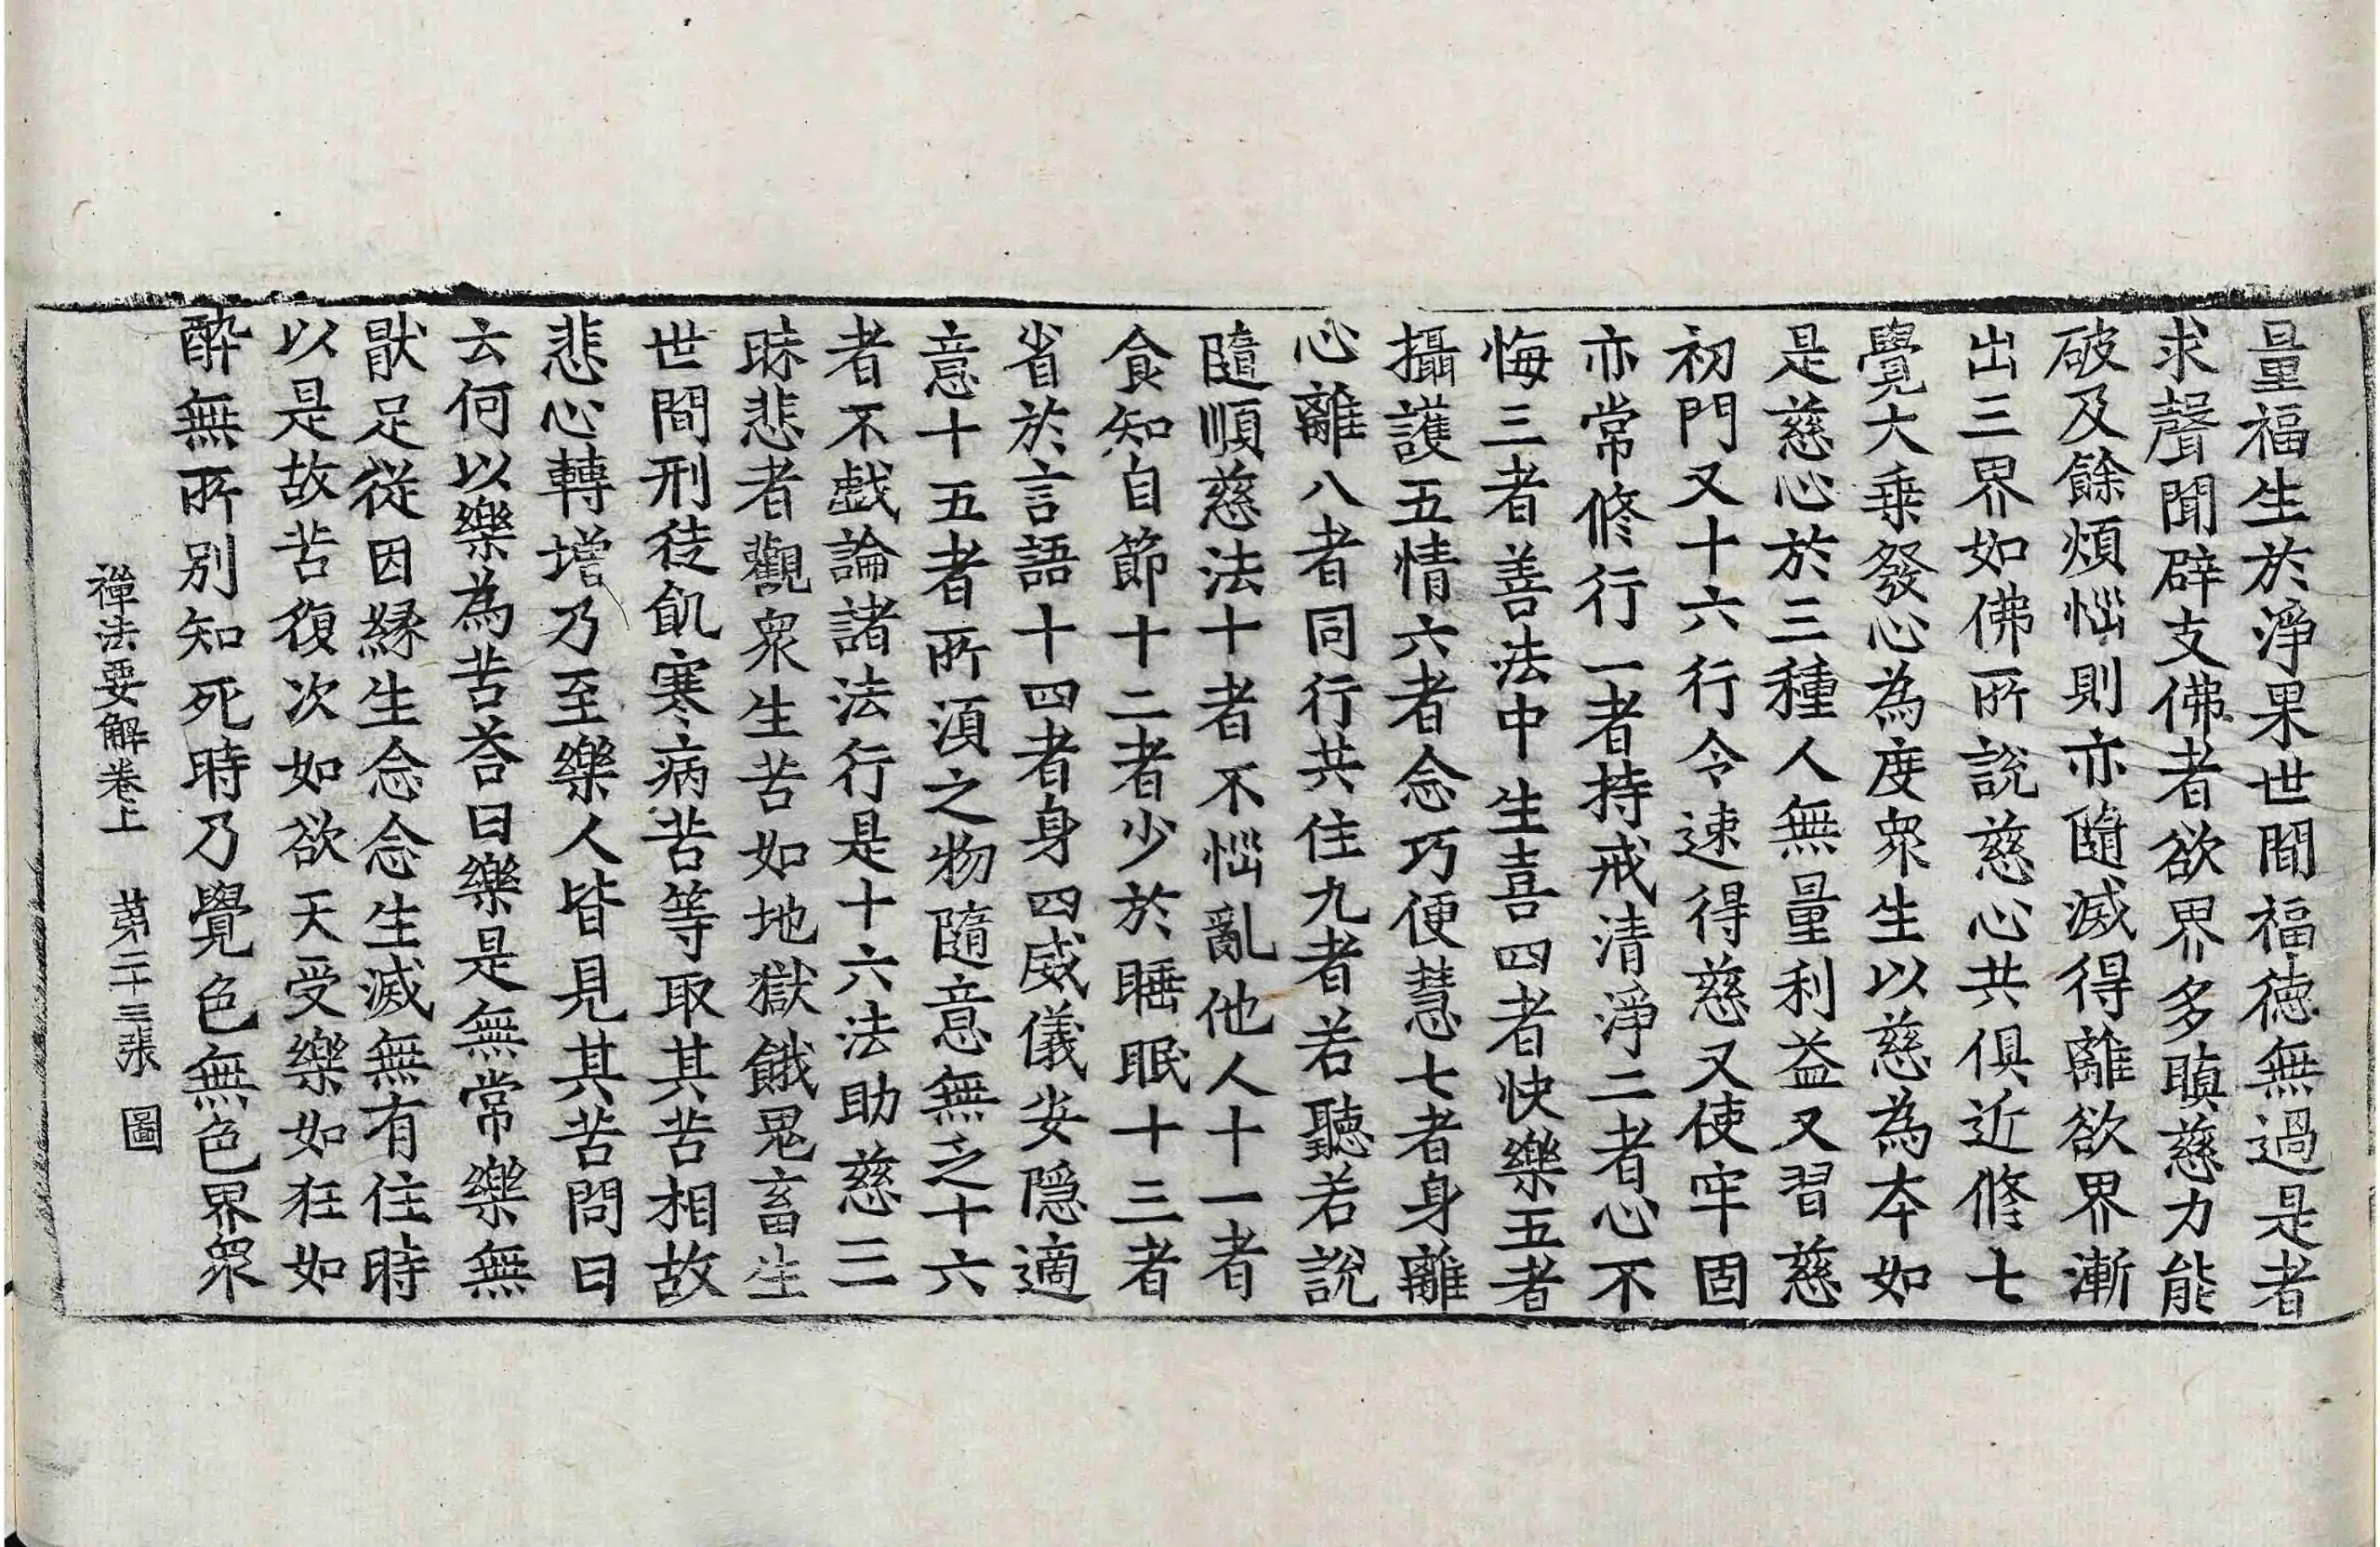 量福生於淨果世間福德無過是者
求聲聞辟支佛者欲界多瞋慈力能
破及餘煩惱則亦隨滅得離欲界漸
出三界如佛所說慈心共俱近修七
覺大乗發心為度衆生以慈為本如
是慈心於三種人無量利益又習慈
初門又十六行令速得慈又使牢固
亦常修行一者持戒清淨二者心不
悔三者善法中生喜四者快樂五者
攝護五情六者念巧便慧七者身離
心離八者同行共住九者若聽若說
隨順慈法十者不惱亂他人十一者
食知自節十二者少於睡眠十三者
省於言語十四者身四威儀安隱適
意十五者所湏之物隨意無乏十六
者不戱論諸法行是十六法助慈三
昧悲者觀衆生苦如地獄餓鬼畜生
世間刑徒飢寒病苦等取其苦相故
悲心轉增乃至樂人皆見其苦問曰
云何以樂為苦荅曰樂是無常樂無
猒足從因緣生念念生滅無有住時
以是故苦復次如欲天受樂如狂如
醉無所別知死時乃覺色無色界衆
禪法要解卷上 第二十三張 圖